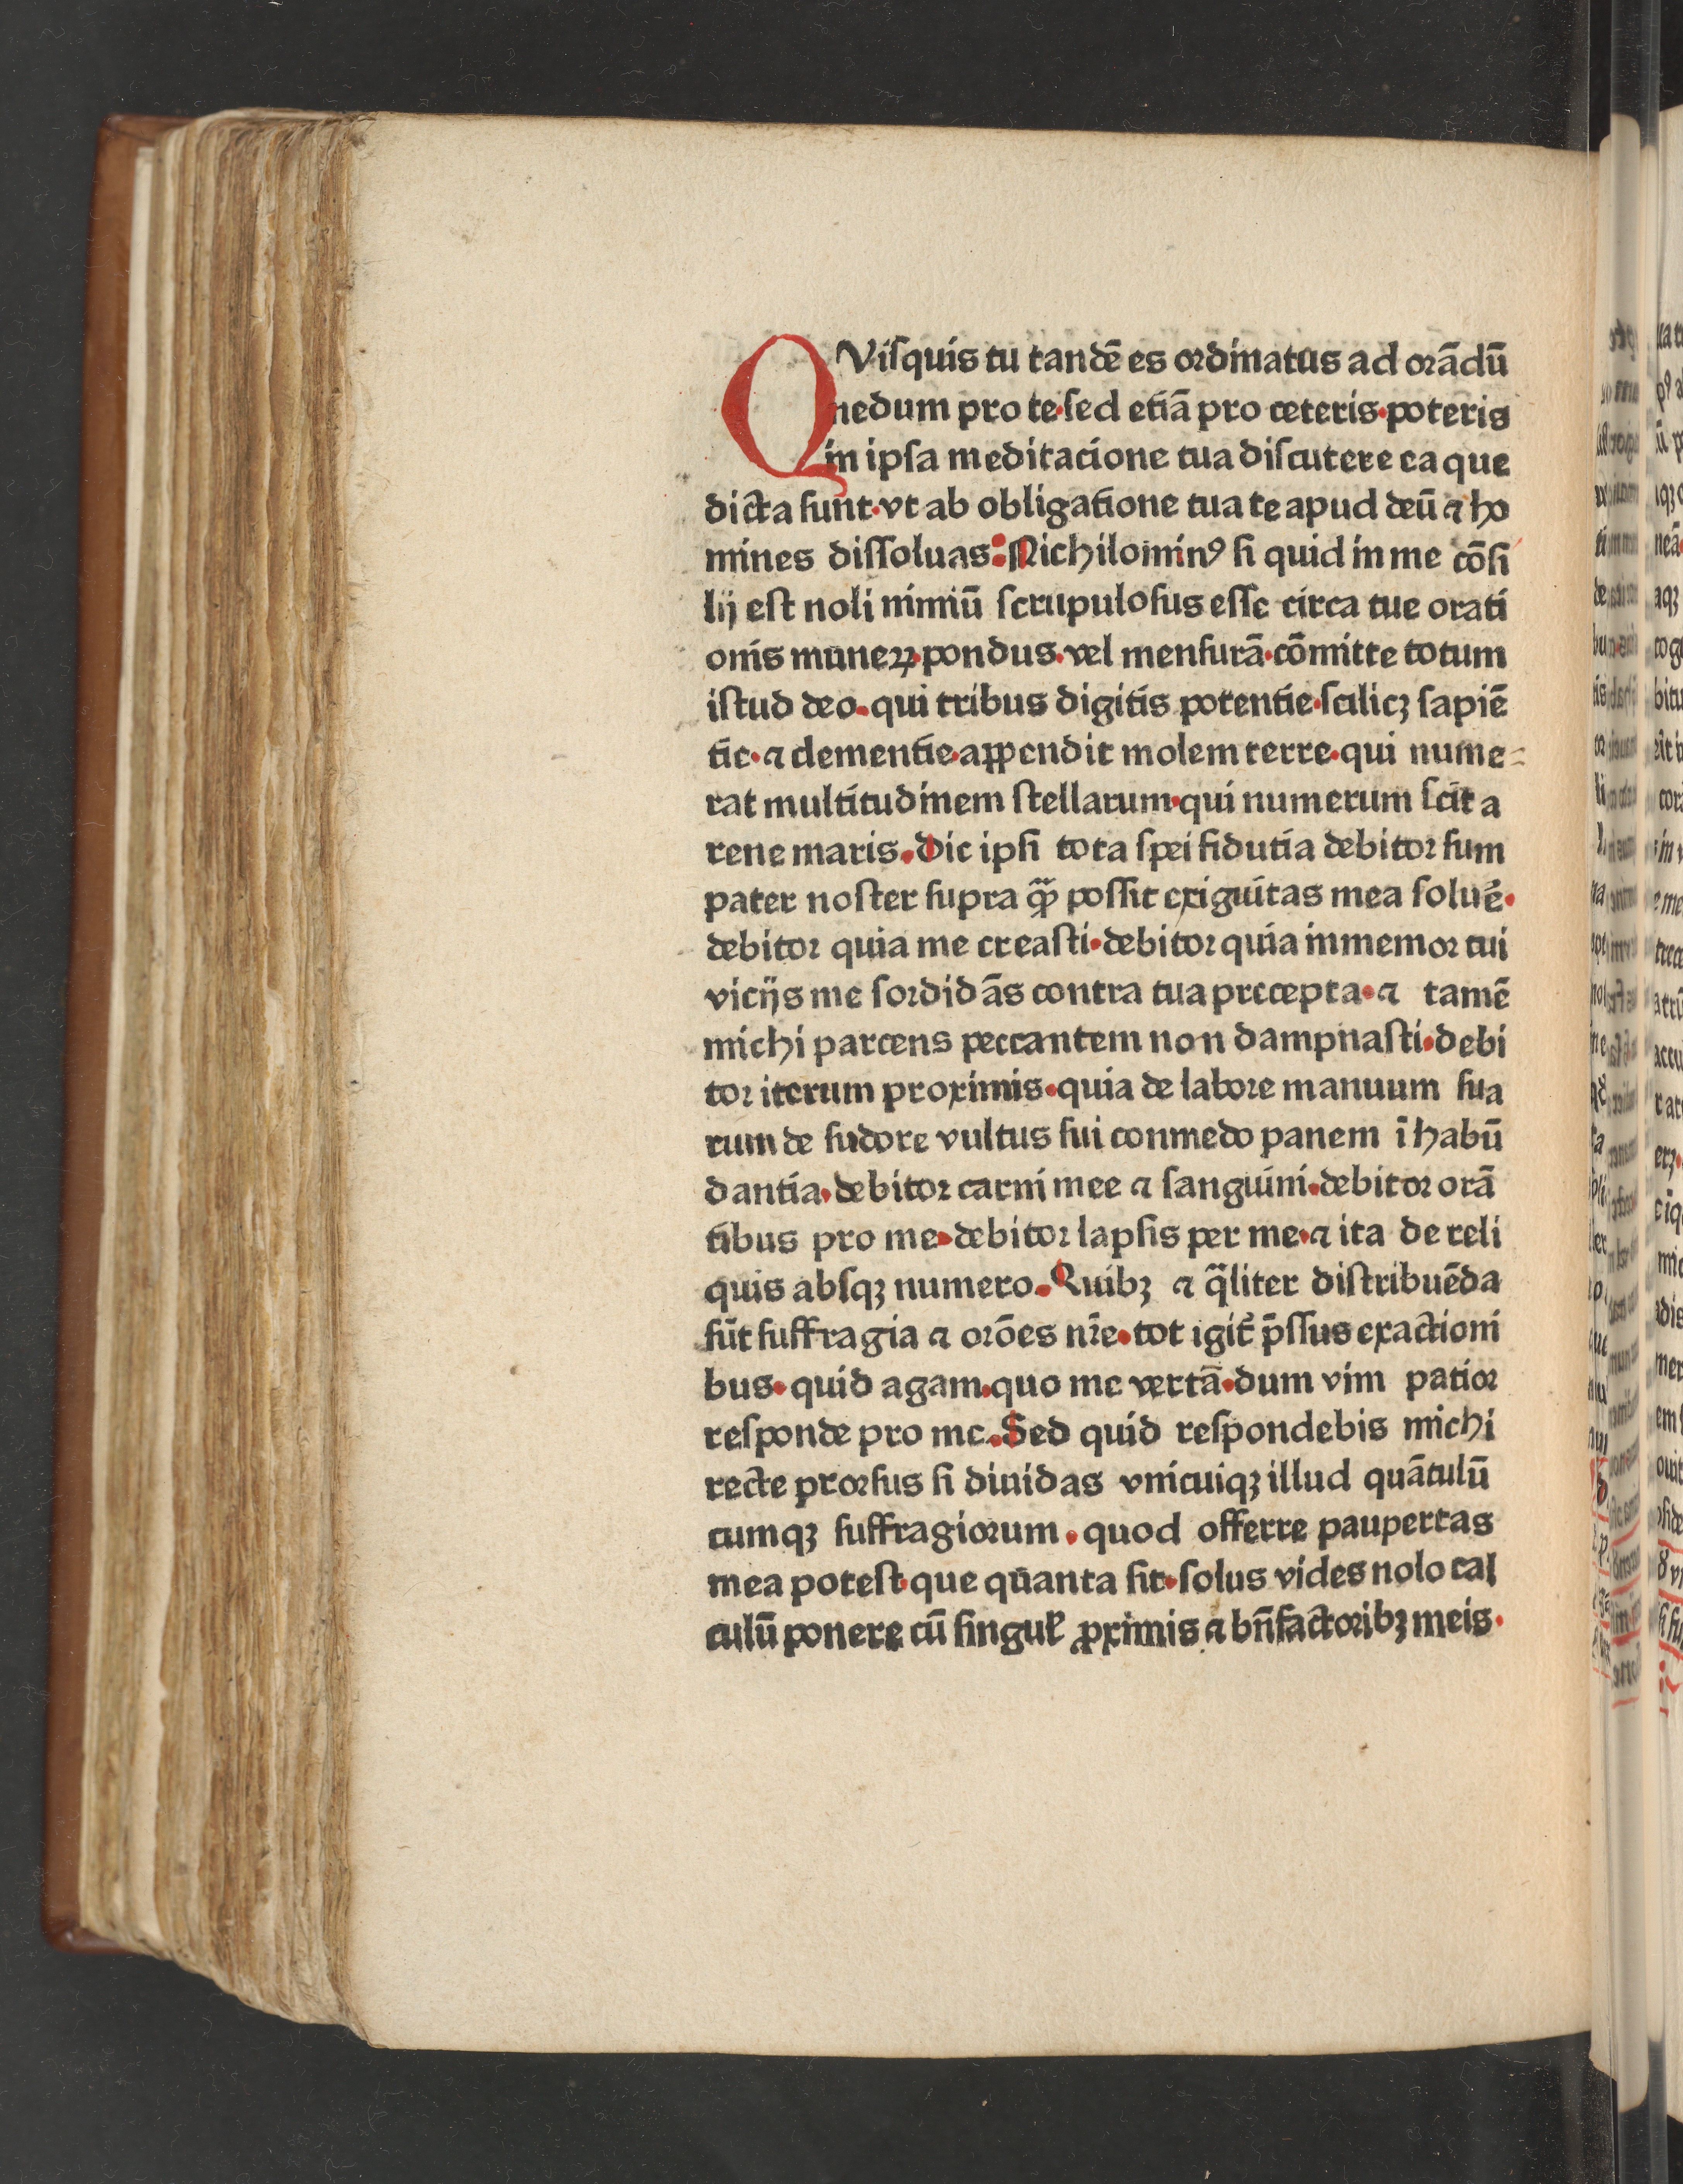 QViſquis tu tandē es ordinatus ad orādū
nedum pro te·ſed etiā pro ceteris·poteris
in ipſa meditacione tua diſcutere ea que
dicta ſunt·vt ab obligatione tua te apud deū ⁊ ho
mines diſſoluas: Nichilominꝰ ſi quid in me cōſi
lij eſt noli nimiū ſcrupuloſus eſſe circa tue orati
onis muneꝝ·pondus·vel menſurā·cōmitte totum
iſtud deo·qui tribus digitis potentie·ſcilicꝫ ſapiē
tie·⁊ clementie·appendit molem terre·qui nume⸗
rat multitudinem ſtellarum·qui numerum ſcit a
rene maris.Dic ipſi tota ſpei fidutia debitor ſum
pater noſter ſupra ꝙ̄ poſſit exiguitas mea ſoluē·
debitor quia me creaſti·debitor quia inmemor tui
vicijs me ſordidās contra tua precepta·⁊ tamē
michi parcens peccantem non dampnaſti·debi
tor iterum proximis·quia de labore manuum ſua
rum de ſudore vultus ſui conmedo panem ī habū
dantia·debitor carni mee ⁊ ſanguini·debitor orā
tibus pro me·debitor lapſis per me·⁊ ita de reli
quis abſqꝫ numero.Quibꝫ ⁊ q̄liter diſtribuēda
ſūt ſuffragia ⁊ orōes nr̄e·tot igit᷑ p̄ſſus exactioni
bus·quid agam·quo me vertā·dum vim patior
reſponde pro me.Sed quid reſpondebis michi
recte prorſus ſi diuidas vnicuiqꝫ illud quātulū
cumqꝫ ſuffragiorum·quod offerre paupertas
mea poteſt·que quanta ſit·ſolus vides nolo cal
culū ponere cū ſingul̉ ꝓximis ⁊ bn̄factoribꝫ meis·